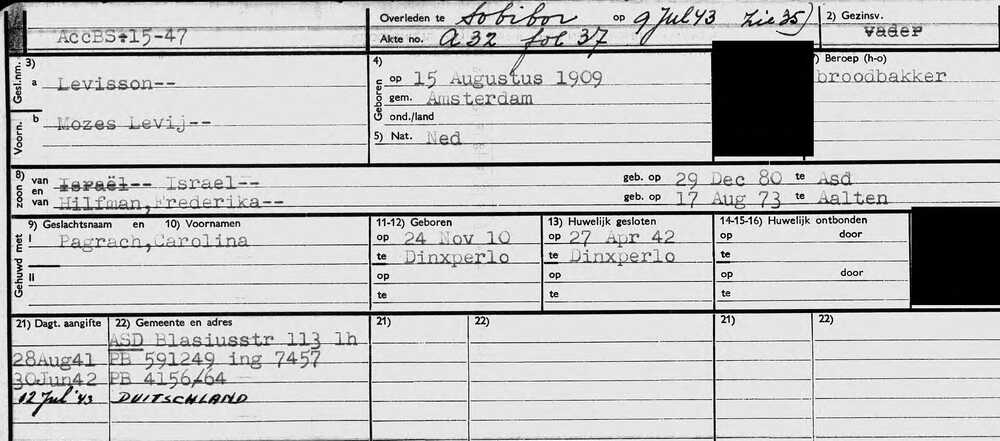 Overleden te Sobibor op 9 Jul 43 Zie 35) 2) Gezinsv.
AccBS:15-47 Akte no. A32 fol 37 vader
Gesl.nm. 3) 4) Beroep (h-o)
a Levisson-- Geboren op 15 Augustus 1909 broodbakker
gem. Amsterdam
Voorn. b Mozes Levij-- ond./land
5) Nat. Ned
8) zoon van Israël-- Israel-- geb. op 29 Dec 80 te Asd
en van Hilfman,Frederika-- geb. op 17 Aug 73 te Aalten
9) Geslachtsnaam en 10) Voornamen 11-12) Geboren 13) Huwelijk gesloten 14-15-16) Huwelijk ontbonden
Gehuwd met I Pagrach,Carolina op 24 Nov 10 op 27 Apr 42 op door
te Dinxperlo te Dinxperlo te
II op op op door
te te te
21) Dagt. aangifte 22) Gemeente en adres 21) 22) 21) 22)
ASD Blasiusstr 113 1h
28Aug41 PB 591249 ing 7457
30Jun42 PB 4156/64
12 Jul '43 DUITSCHLAND